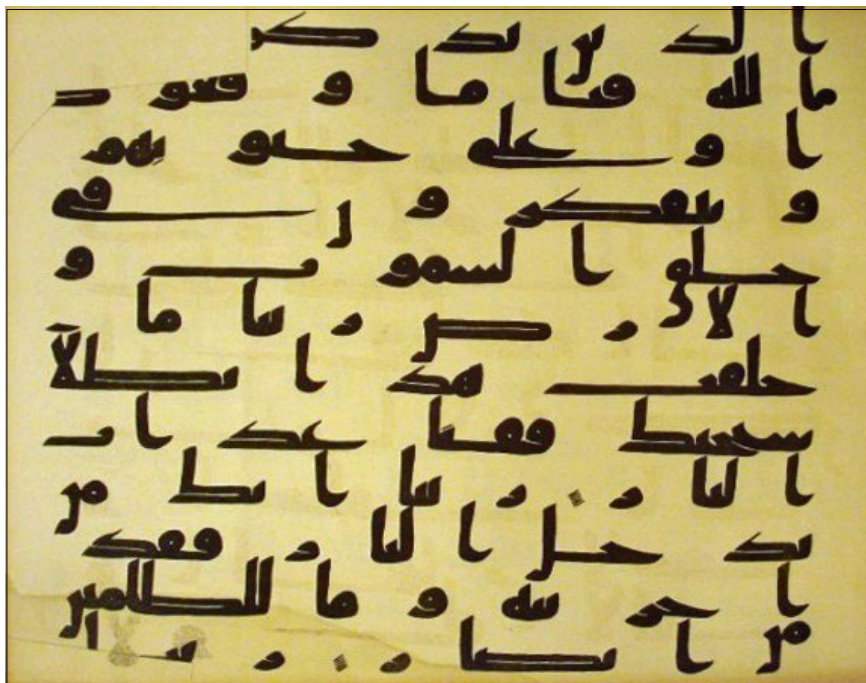 الذين يذكرو
ن الله قياما وقعود
ا وعلى جنوبهم
ويتفكرون في
خلق السموت و
الارض ربنا ما
خلقت هذا بطلا
سبحنك فقنا عذاب
النار ربنا انك من
تدخل النار فقد
اخزيته وما للظلمين
من انصار ربنا